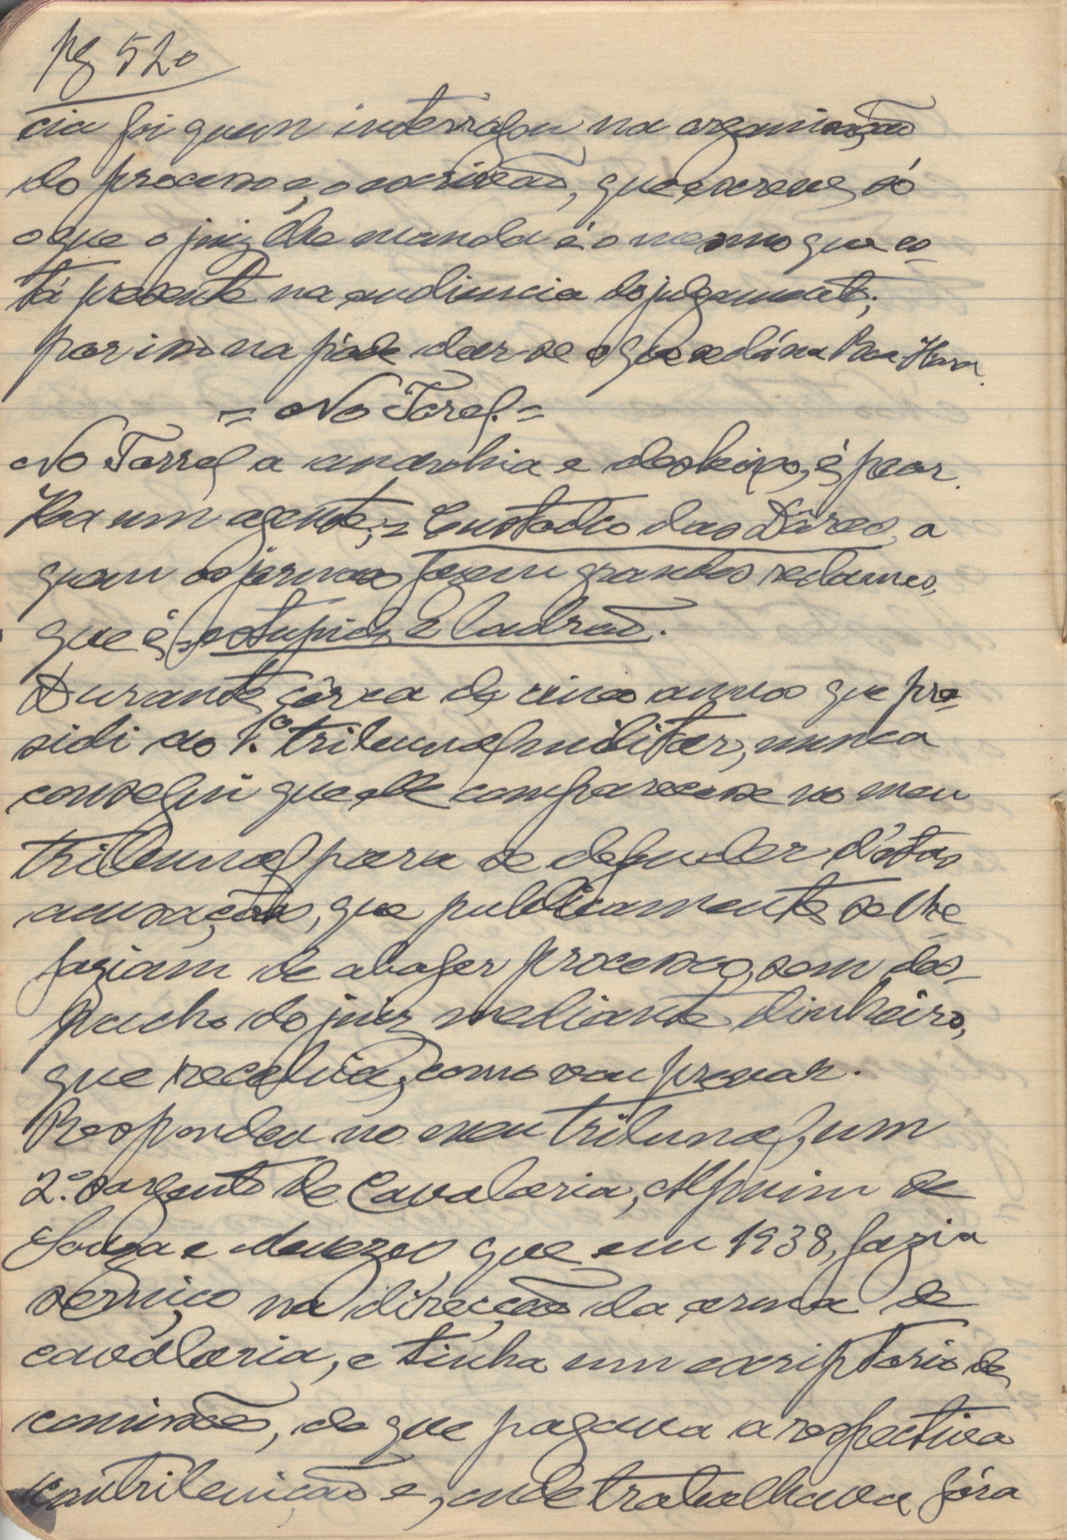 pg 520
cia foi quem interrogou na organisação
do processo, e, o escrivão, que escreve só
o que o juiz lhe manda é o mesmo que es-
tá presente na audiencia do julgamento;
por isso na pode dar-se o que se dá na Boa Hora.
= No Torel. =
No Torrel a anarchia e desleixo, é peor.
Ha um agente, = Custodio das Dôres, a
quem os jornaes fazem grandes reclames,
que é estupido e ladrão.
Durante cêrca de cinco annos que pre-
sidi ao 1.º tribunal militar, nunca
consegui que elle comparecesse no meu
tribunal para se defender d'estas
acusações, que publicamente se lhe
faziam de abafar processos, sem des-
pacho do juiz mediante dinheiro,
que recebia, como vou provar.
Respondeu no meu tribunal, um
2.º sargento de Cavalaria, Alpuim de
Sousa e Menezes, que em 1938, fazia
serviço na direcção da arma de
cavalaria, e tinha um escriptorio de
comissões, de que pagava a respectiva
contribuição e, onde trabalhava fóra